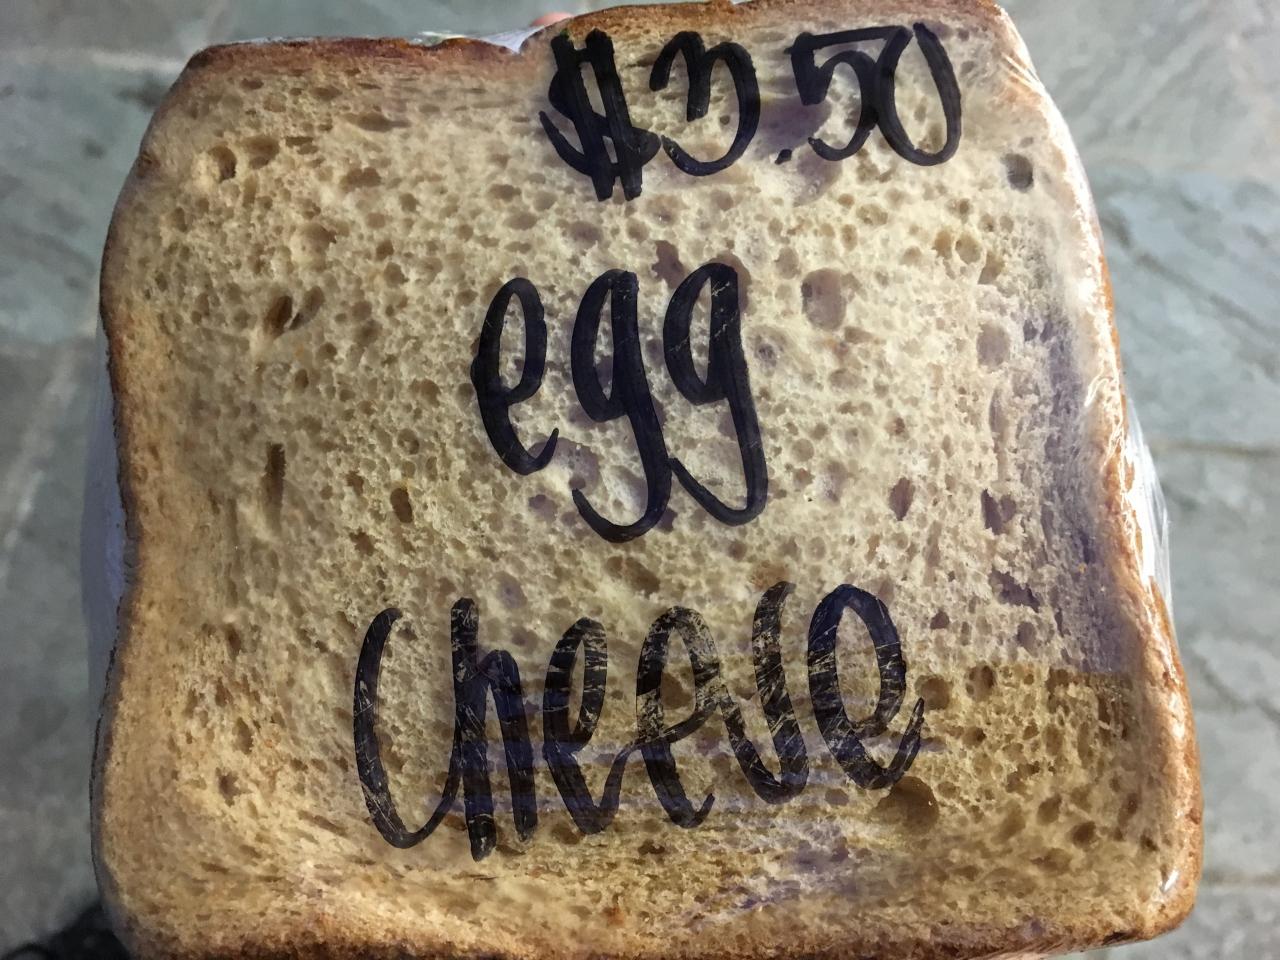 $3.50
egg
cheese